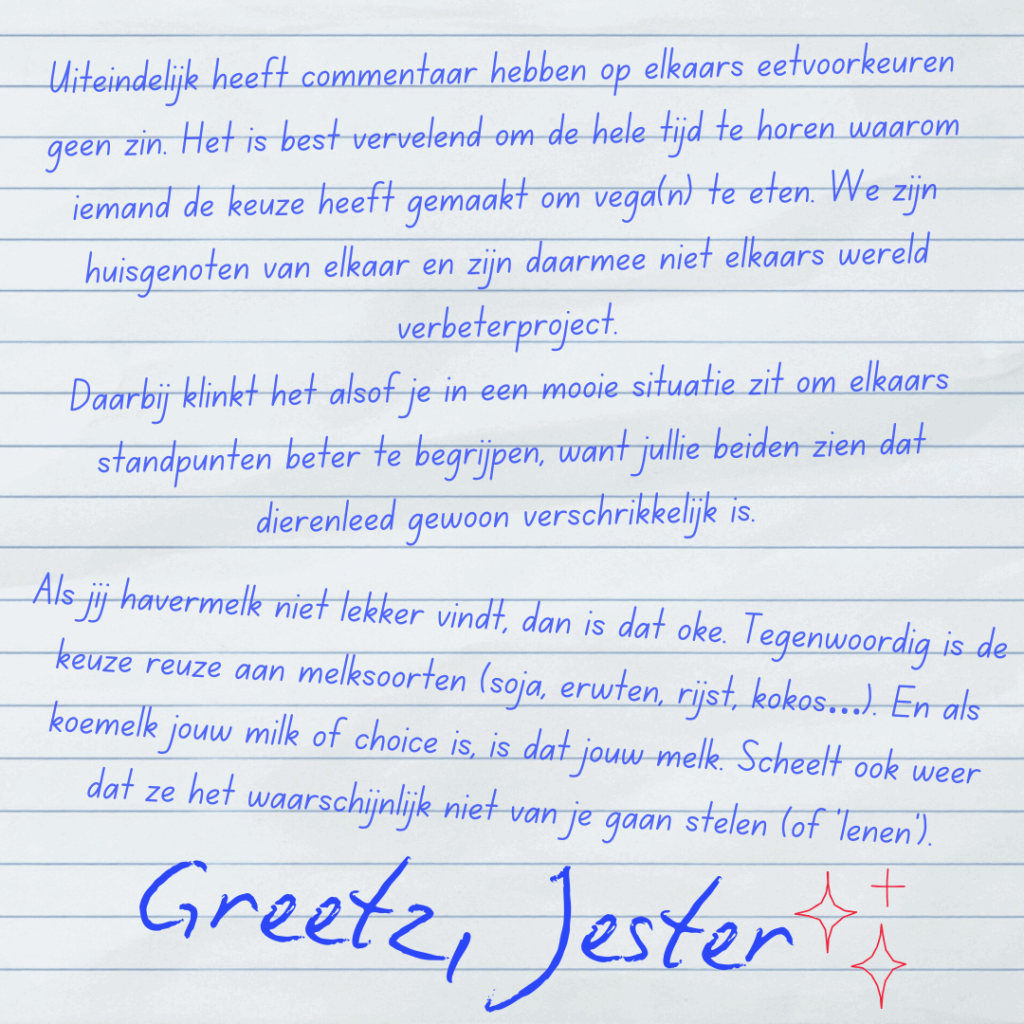 Uiteindelijk heeft commentaar hebben op elkaars eetvoorkeuren
geen zin. Het is best vervelend om de hele tijd te horen waarom
iemand de keuze heeft gemaakt om vega(n) te eten. We zijn
huisgenoten van elkaar en zijn daarmee niet elkaars wereld
verbeterproject.
Daarbij klinkt het alsof je in een mooie situatie zit om elkaars
standpunten beter te begrijpen, want jullie beiden zien dat
dierenleed gewoon verschrikkelijk is.
Als jij havermelk niet lekker vindt, dan is dat oke. Tegenwoordig is de
keuze reuze aan melksoorten (soja, erwten, rijst, kokos...). En als
koemelk jouw milk of choice is, is dat jouw melk. Scheelt ook weer
dat ze het waarschijnlijk niet van je gaan stelen (of 'lenen').
Greetz, Jester